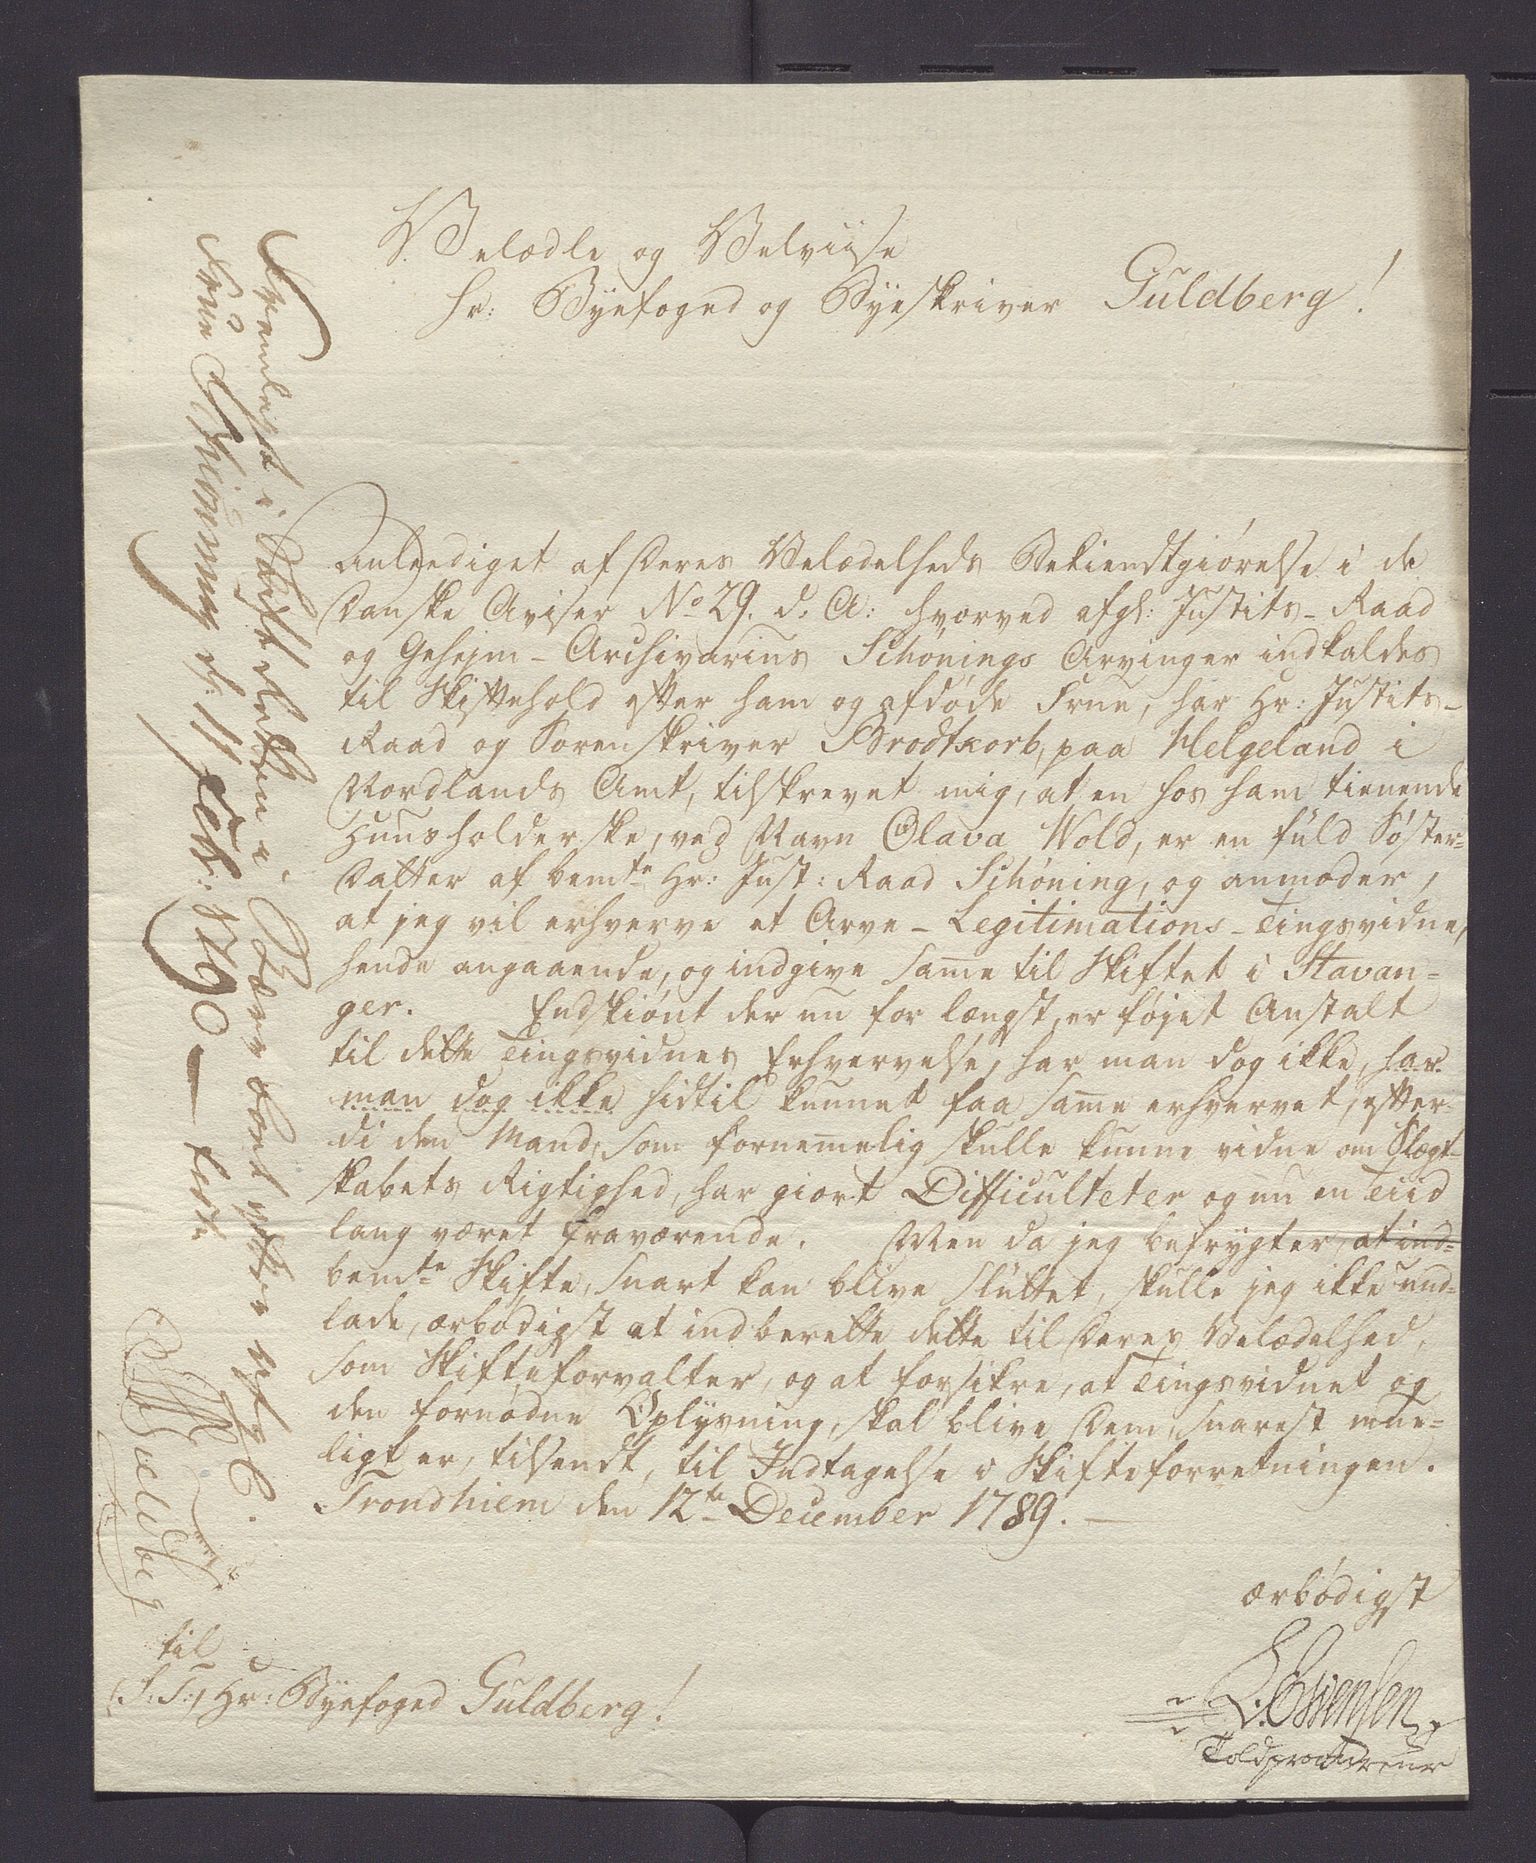 Velædle og Velviise
Hr: Byefoged og Byeskriver Guldberg!
Anlediget af Deres Velædelheds Bekiendtgiørelse i de
Danske Aviser No 29. d. A: hvorved afg: Justits-Raad
og Gehejm-Archivarius Schönings Arvinger indkaldes
til Skiftehold efter ham og afdøde Frue, har Hr: Justits-
Raad og Sorenskriver Brodtkorb, paa Helgeland i
Nordlands Amt, tilskrevet mig, at en hos ham tienende
Huusholderske, ved Navn Olava Wold, er en fuld Søster-
Datter af bemte Hr: Just: Raad Schöning, og anmoder,
at jeg vil erhverve et Arve-Legitimations-Tingsvidne,
hende angaaende, og indgive same til Skiftet i Stavan-
ger. Endskiønt der nu for længst er føjet Anstalt
til dette Tingsvidnes Erhvervelse, har man dog ikke, har
man dog ikke hidtil kunnet faa same erhvervet, efter-
di den Mand, som fornemelig skulle kunne vidne om Slægt-
skabets Rigtighed, har giort Difficulteter og nu en Tiid
lang været fraværende. Men da jeg befrygter, at ind-
bemte Skifte, snart kan blive sluttet, skulle jeg ikke und-
lade, ærbødigst at indberette dette til Deres Velædelhed,
som Skifteforvalter, og at forsikre, at Tingsvidnet og
den fornødne Oplysning, skal blive Dem, snarest mue-
ligt er, tilsendt, til Indtagelse i Skifteforretningen.
Trondhiem den 12te December 1789.
ærbødigst
L. Evensen
Toldprocureur
til
S: T:, Hr: Byefoged Guldberg!
Fremlagt i Skifte Retten i efter afg.
Frue Schiönning d: 11 Febr: 1790 — teste
Guldberg